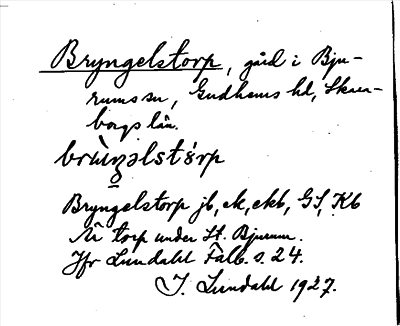 Bryngelstorp, gård i Bju-
rums sn, Gudhems hd, Skara-
borgs län.
brùŋəlstórp
Bryngelstorp jb, ek, ekb, GS, Kb
torp under St. Bjurum.
Jfr Lundahl Falb. s. 24.
I. Lundahl 1927.